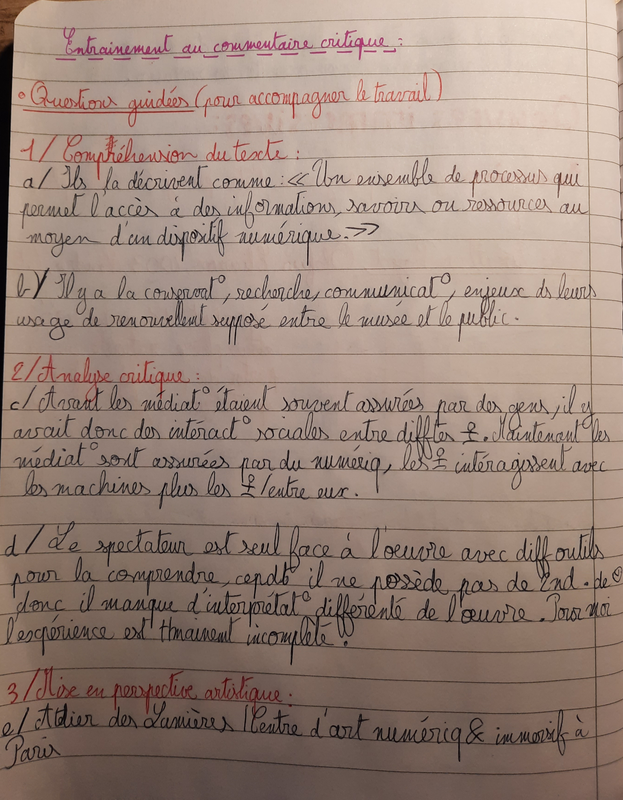 Entrainement au commentaire critique :
• Questions guidées (pour accompagner le travail)
1/ Compréhension du texte :
a/ Ils la décrivent comme : « Un ensemble de processus qui
permet l'accès à des informations, savoirs ou ressources au
moyen d'un dispositif numérique. »
b/ Il y a la conservat°, recherche, communicat°, enjeux ds leurs
usage de renouvellent supposé entre le musée et le public.
2/ Analyse critique :
c/ Avant les médiat° étaient souvent assurées par des gens, il y
avait donc des interact° sociales entre diffttes. Maintenant les
médiat° sont assurées par du numériq, les intéragissent avec
les machines plus les /entre eux.
d/ Le spectateur est seul face à l'oeuvre avec diff outils
pour la comprendre, cepdt il ne possède pas de 2nd. de
donc il manque d'interprétat° différenté de l'oeuvre. Pour moi
l'expérience est incomplète.
3/ Mise en perspective artistique :
e/ Atelier des Lumières | Centre d'art numériq & immersif à
Paris